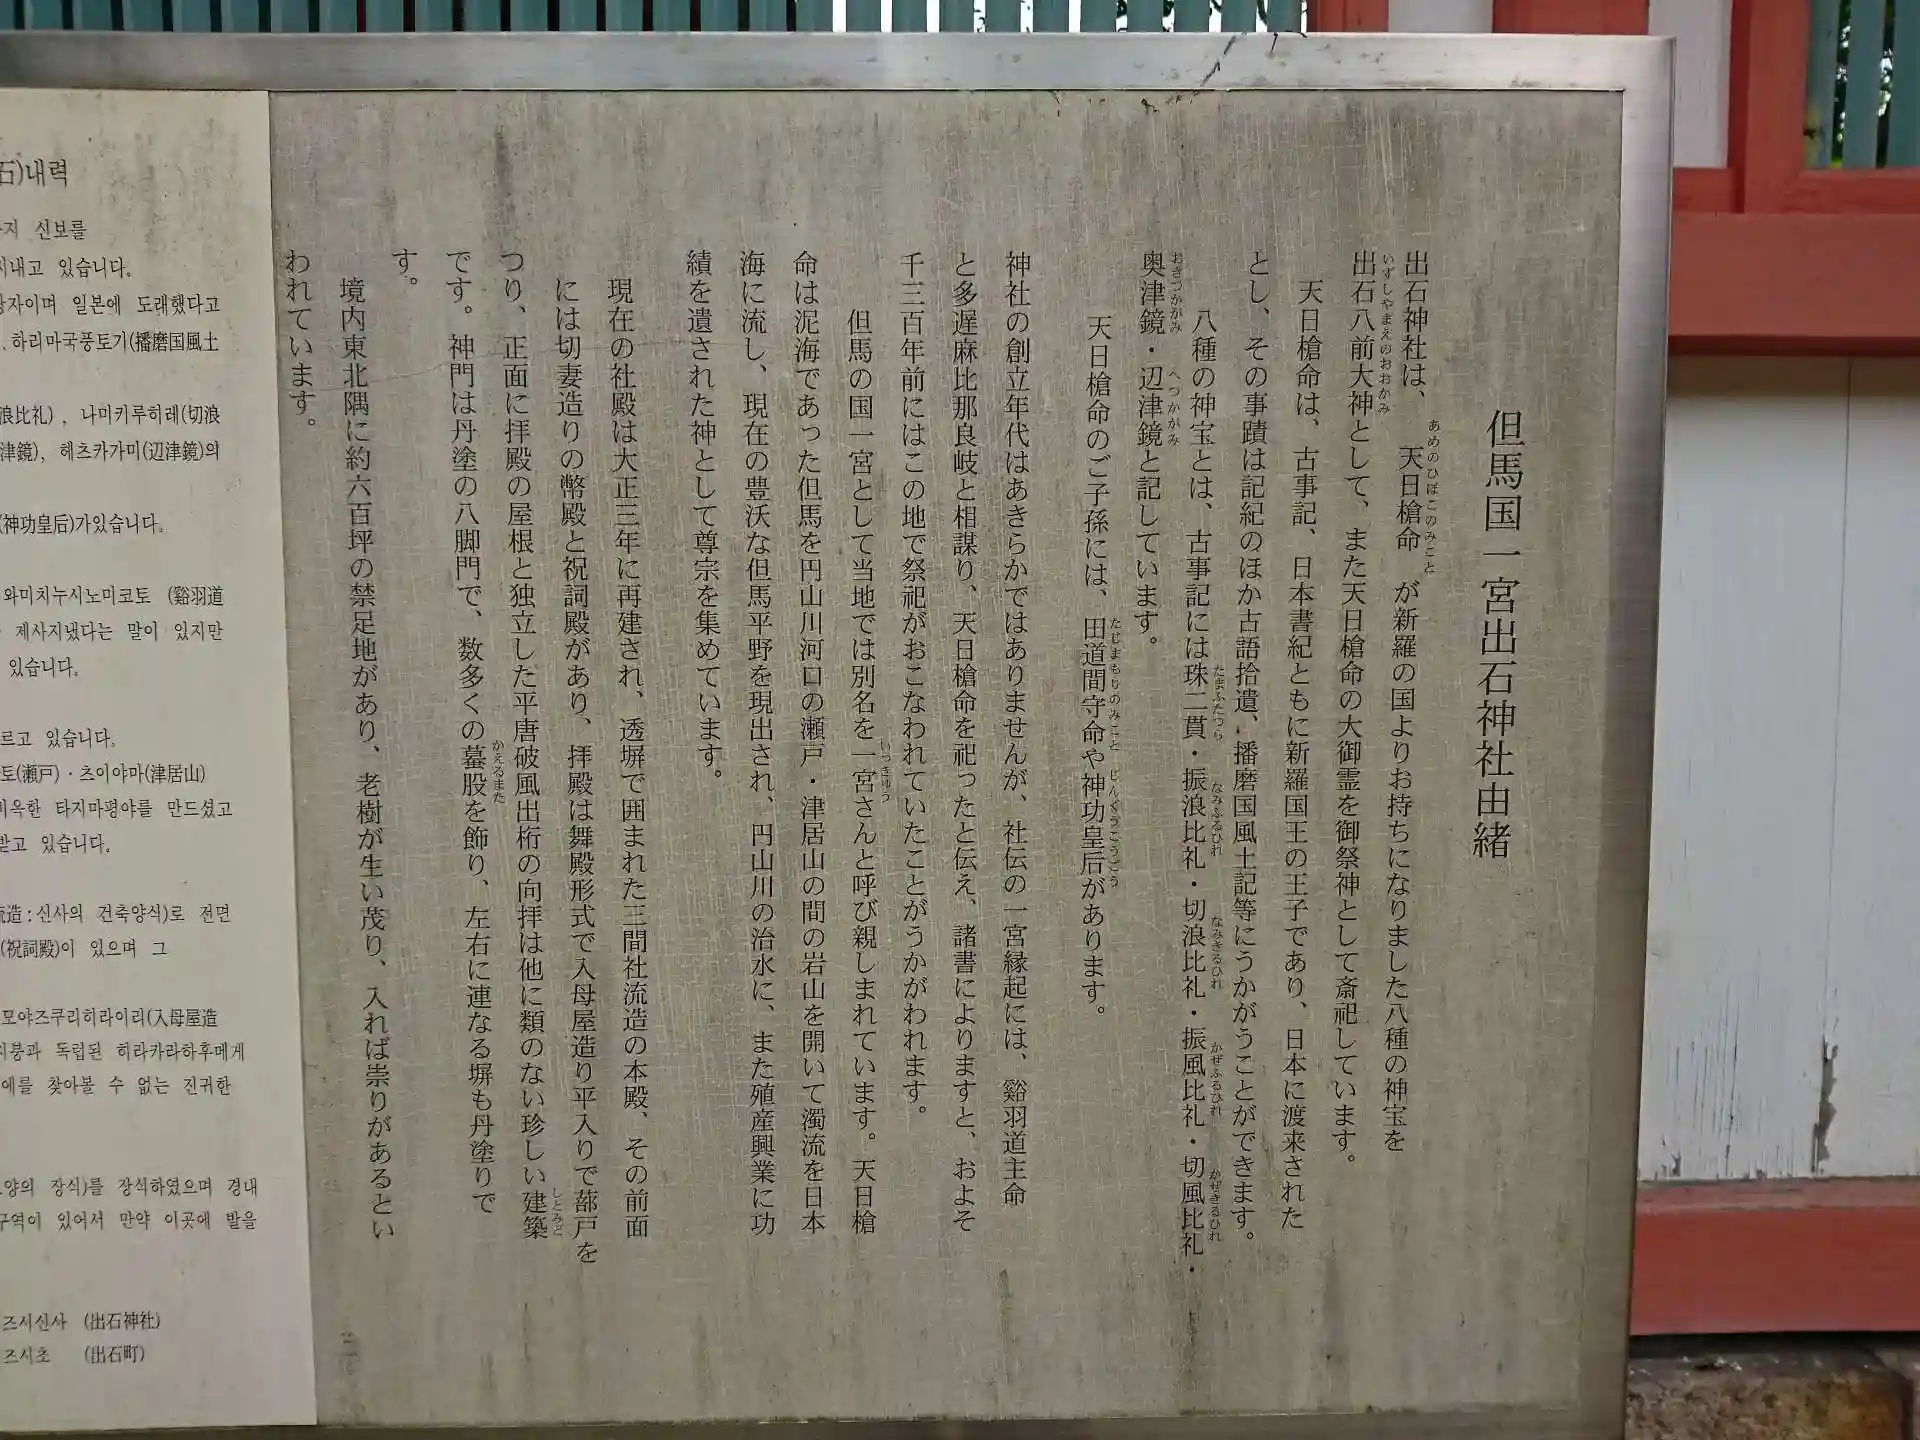 但馬国一宮出石神社由緒
出石神社は、天日槍命が新羅の国よりお持ちになりました八種の神宝を
あめのひぼこのみこと
出石八前大神として、また天日槍命の大御霊を御祭神として斎祀しています。
いずしやまえのおおかみ
天日槍命は、古事記、日本書紀ともに新羅国王の王子であり、日本に渡来された
とし、その事蹟は記紀のほか古語拾遺、播磨国風土記等にうかがうことができます。
八種の神宝とは、古事記には珠二貫・振浪比礼・切浪比礼・振風比礼・切風比礼・
たまふたつら なみふるひれ なみきるひれ かぜふるひれ かぜきるひれ
奥津鏡・辺津鏡と記しています。
おきつかがみ へつかがみ
天日槍命のご子孫には、田道間守命や神功皇后があります。
たじまもりのみこと じんぐうこうごう
神社の創立年代はあきらかではありませんが、社伝の一宮縁起には、谿羽道主命
と多遅麻比那良岐と相謀り、天日槍命を祀ったと伝え、諸書によりますと、およそ
千三百年前にはこの地で祭祀がおこなわれていたことがうかがわれます。
但馬の国一宮として当地では別名を一宮さんと呼び親しまれています。天日槍
いっきゅう
命は泥海であった但馬を円山川河口の瀬戸・津居山の間の岩山を開いて濁流を日本
海に流し、現在の豊沃な但馬平野を現出され、円山川の治水に、また殖産興業に功
績を遺された神として尊宗を集めています。
現在の社殿は大正三年に再建され、透塀で囲まれた三間社流造の本殿、その前面
には切妻造りの幣殿と祝詞殿があり、拝殿は舞殿形式で入母屋造り平入りで蔀戸を
しとみど
つり、正面に拝殿の屋根と独立した平唐破風出桁の向拝は他に類のない珍しい建築
です。神門は丹塗の八脚門で、数多くの蟇股を飾り、左右に連なる塀も丹塗りで
かえるまた
す。
境内東北隅に約六百坪の禁足地があり、老樹が生い茂り、入れば祟りがあるとい
われています。
石)내력
지 신보를
내고 있습니다.
자이며 일본에 도래했다고
하리마국풍토기(播磨国風土
浪比礼), 나미키루히레(切浪
津鏡), 헤츠카가미(辺津鏡)의
(神功皇后)가있습니다.
와미치누시노미코토 (谿羽道
제사지냈다는 말이 있지만
있습니다.
르고 있습니다.
토(瀬戸)·츠이야마(津居山)
비옥한 타지마평야를 만드셨고
받고 있습니다.
流造:신사의 건축양식)로 전면
(祝詞殿)이 있으며 그
모야즈쿠리히라이리(入母屋造
지붕과 독립된 히라카라하후메게
예를 찾아볼 수 없는 진귀한
양의 장식)를 장식하였으며 경내
구역이 있어서 만약 이곳에 발을
즈시신사 (出石神社)
즈시초 (出石町)